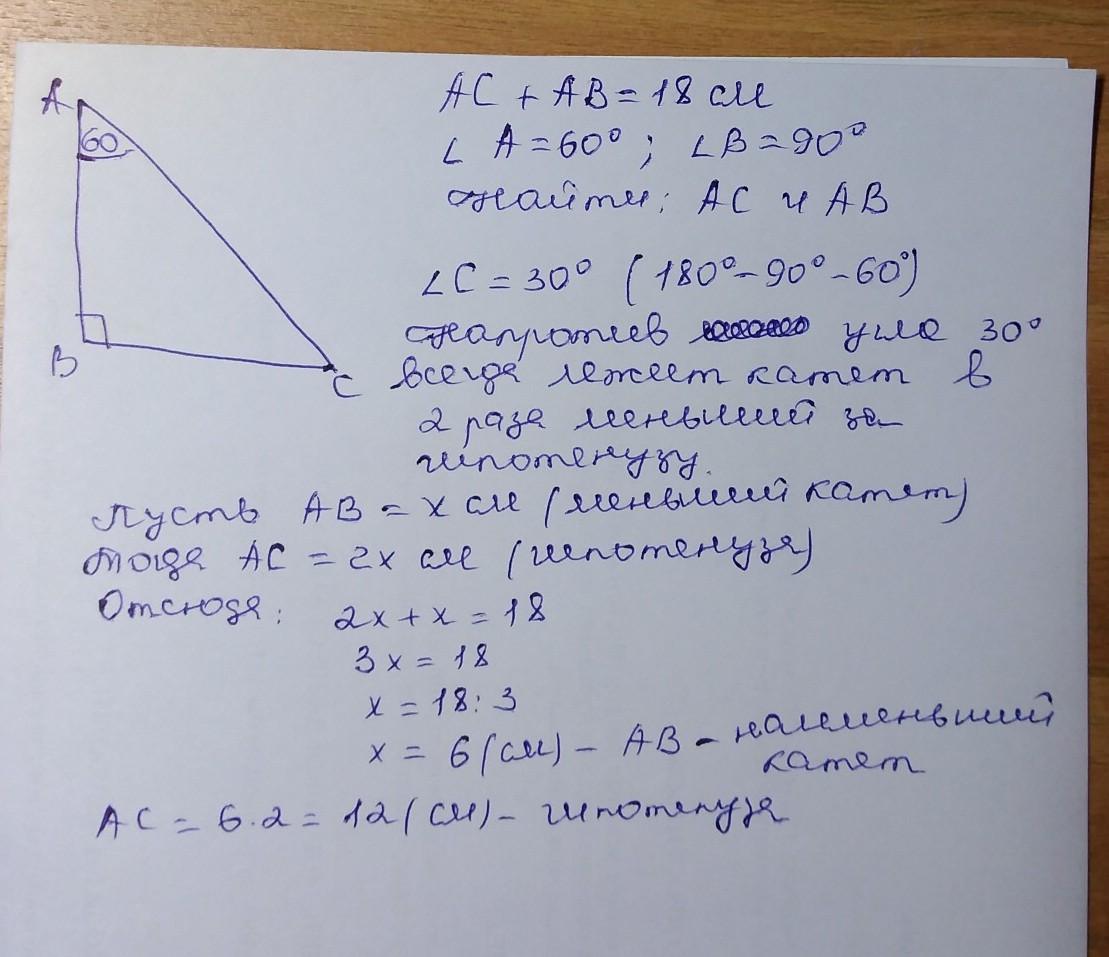 A
60
B
C
AC + AB = 18 см
∠ A = 60° ; ∠B = 90°
Найти: AC и AB
∠C = 30° (180° - 90° - 60°)
Напротив угла 30°
всегда лежит катет в
2 раза меньший за
гипотенузу.
Пусть AB = x см (меньший катет)
Тогда AC = 2x см (гипотенуза)
Отсюда: 2x + x = 18
3x = 18
x = 18 : 3
x = 6 (см) - AB - наименьший
катет
AC = 6 · 2 = 12 (см) - гипотенуза